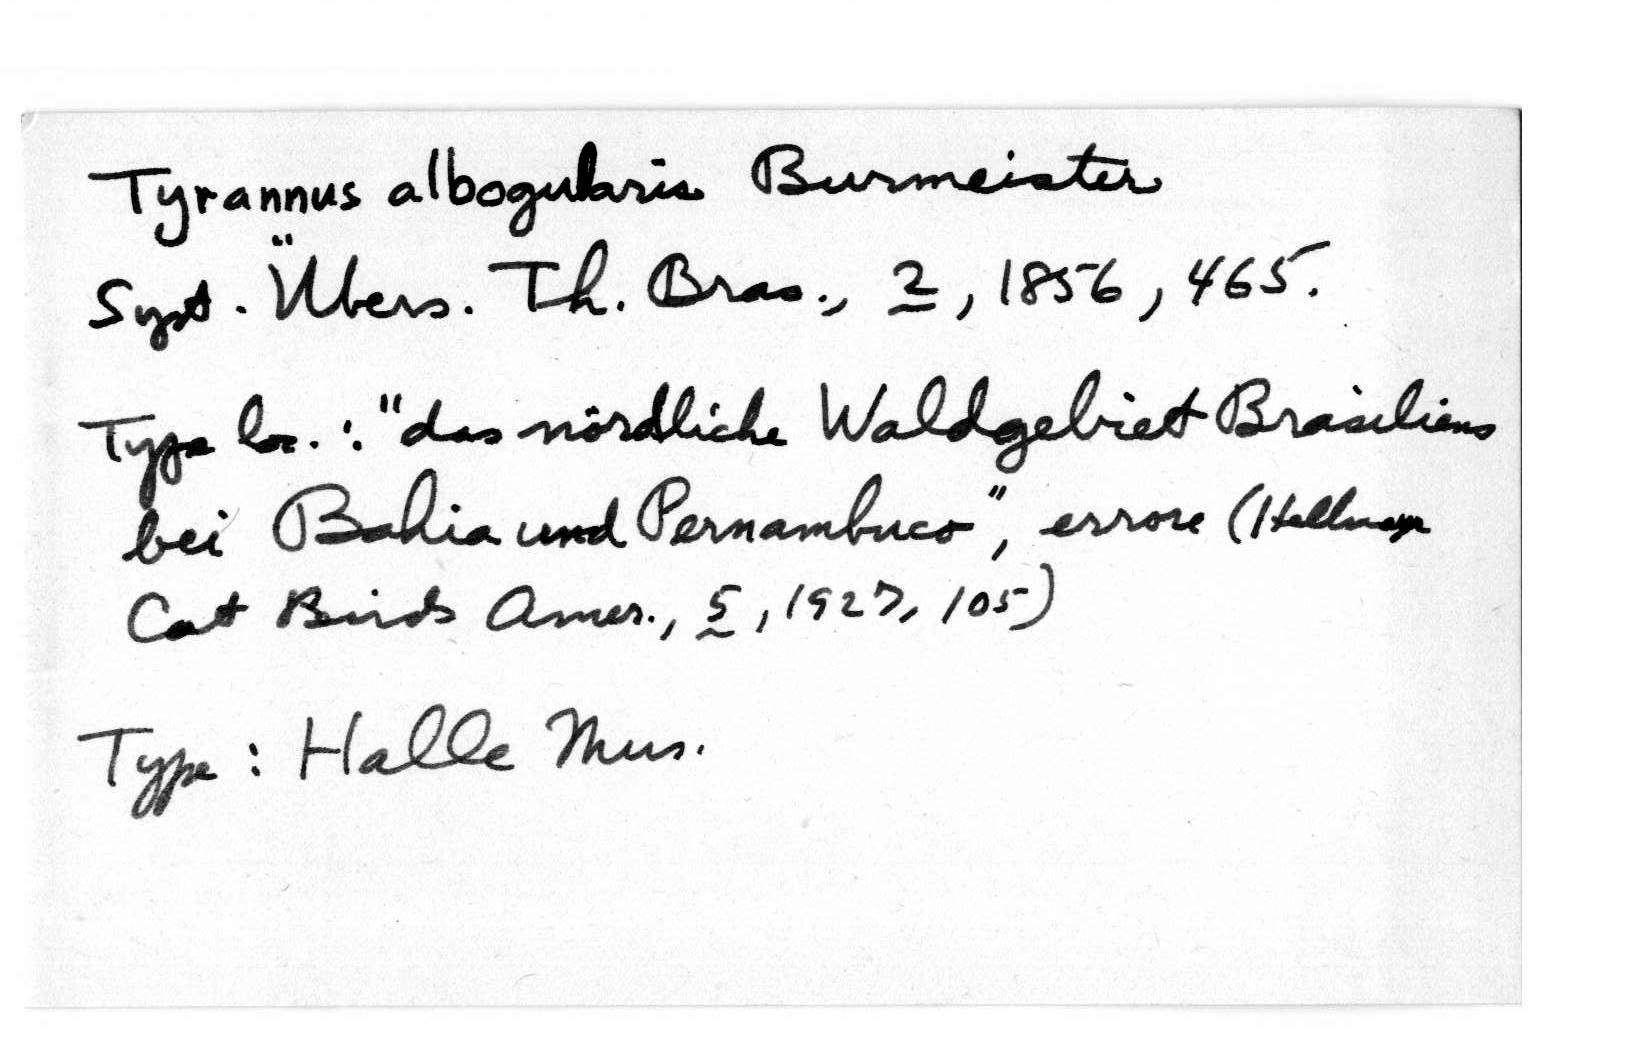 Tyrannus albogularis Burmeister
Syst. Übers. Th. Bras., 2, 1856, 465.
Type loc.: "das nördliche Waldgebiet Brasiliens
bei Bahia und Pernambuco", errore (Hellmayr
Cat Birds Amer., 5, 1927, 105)
Type: Halle Mus.